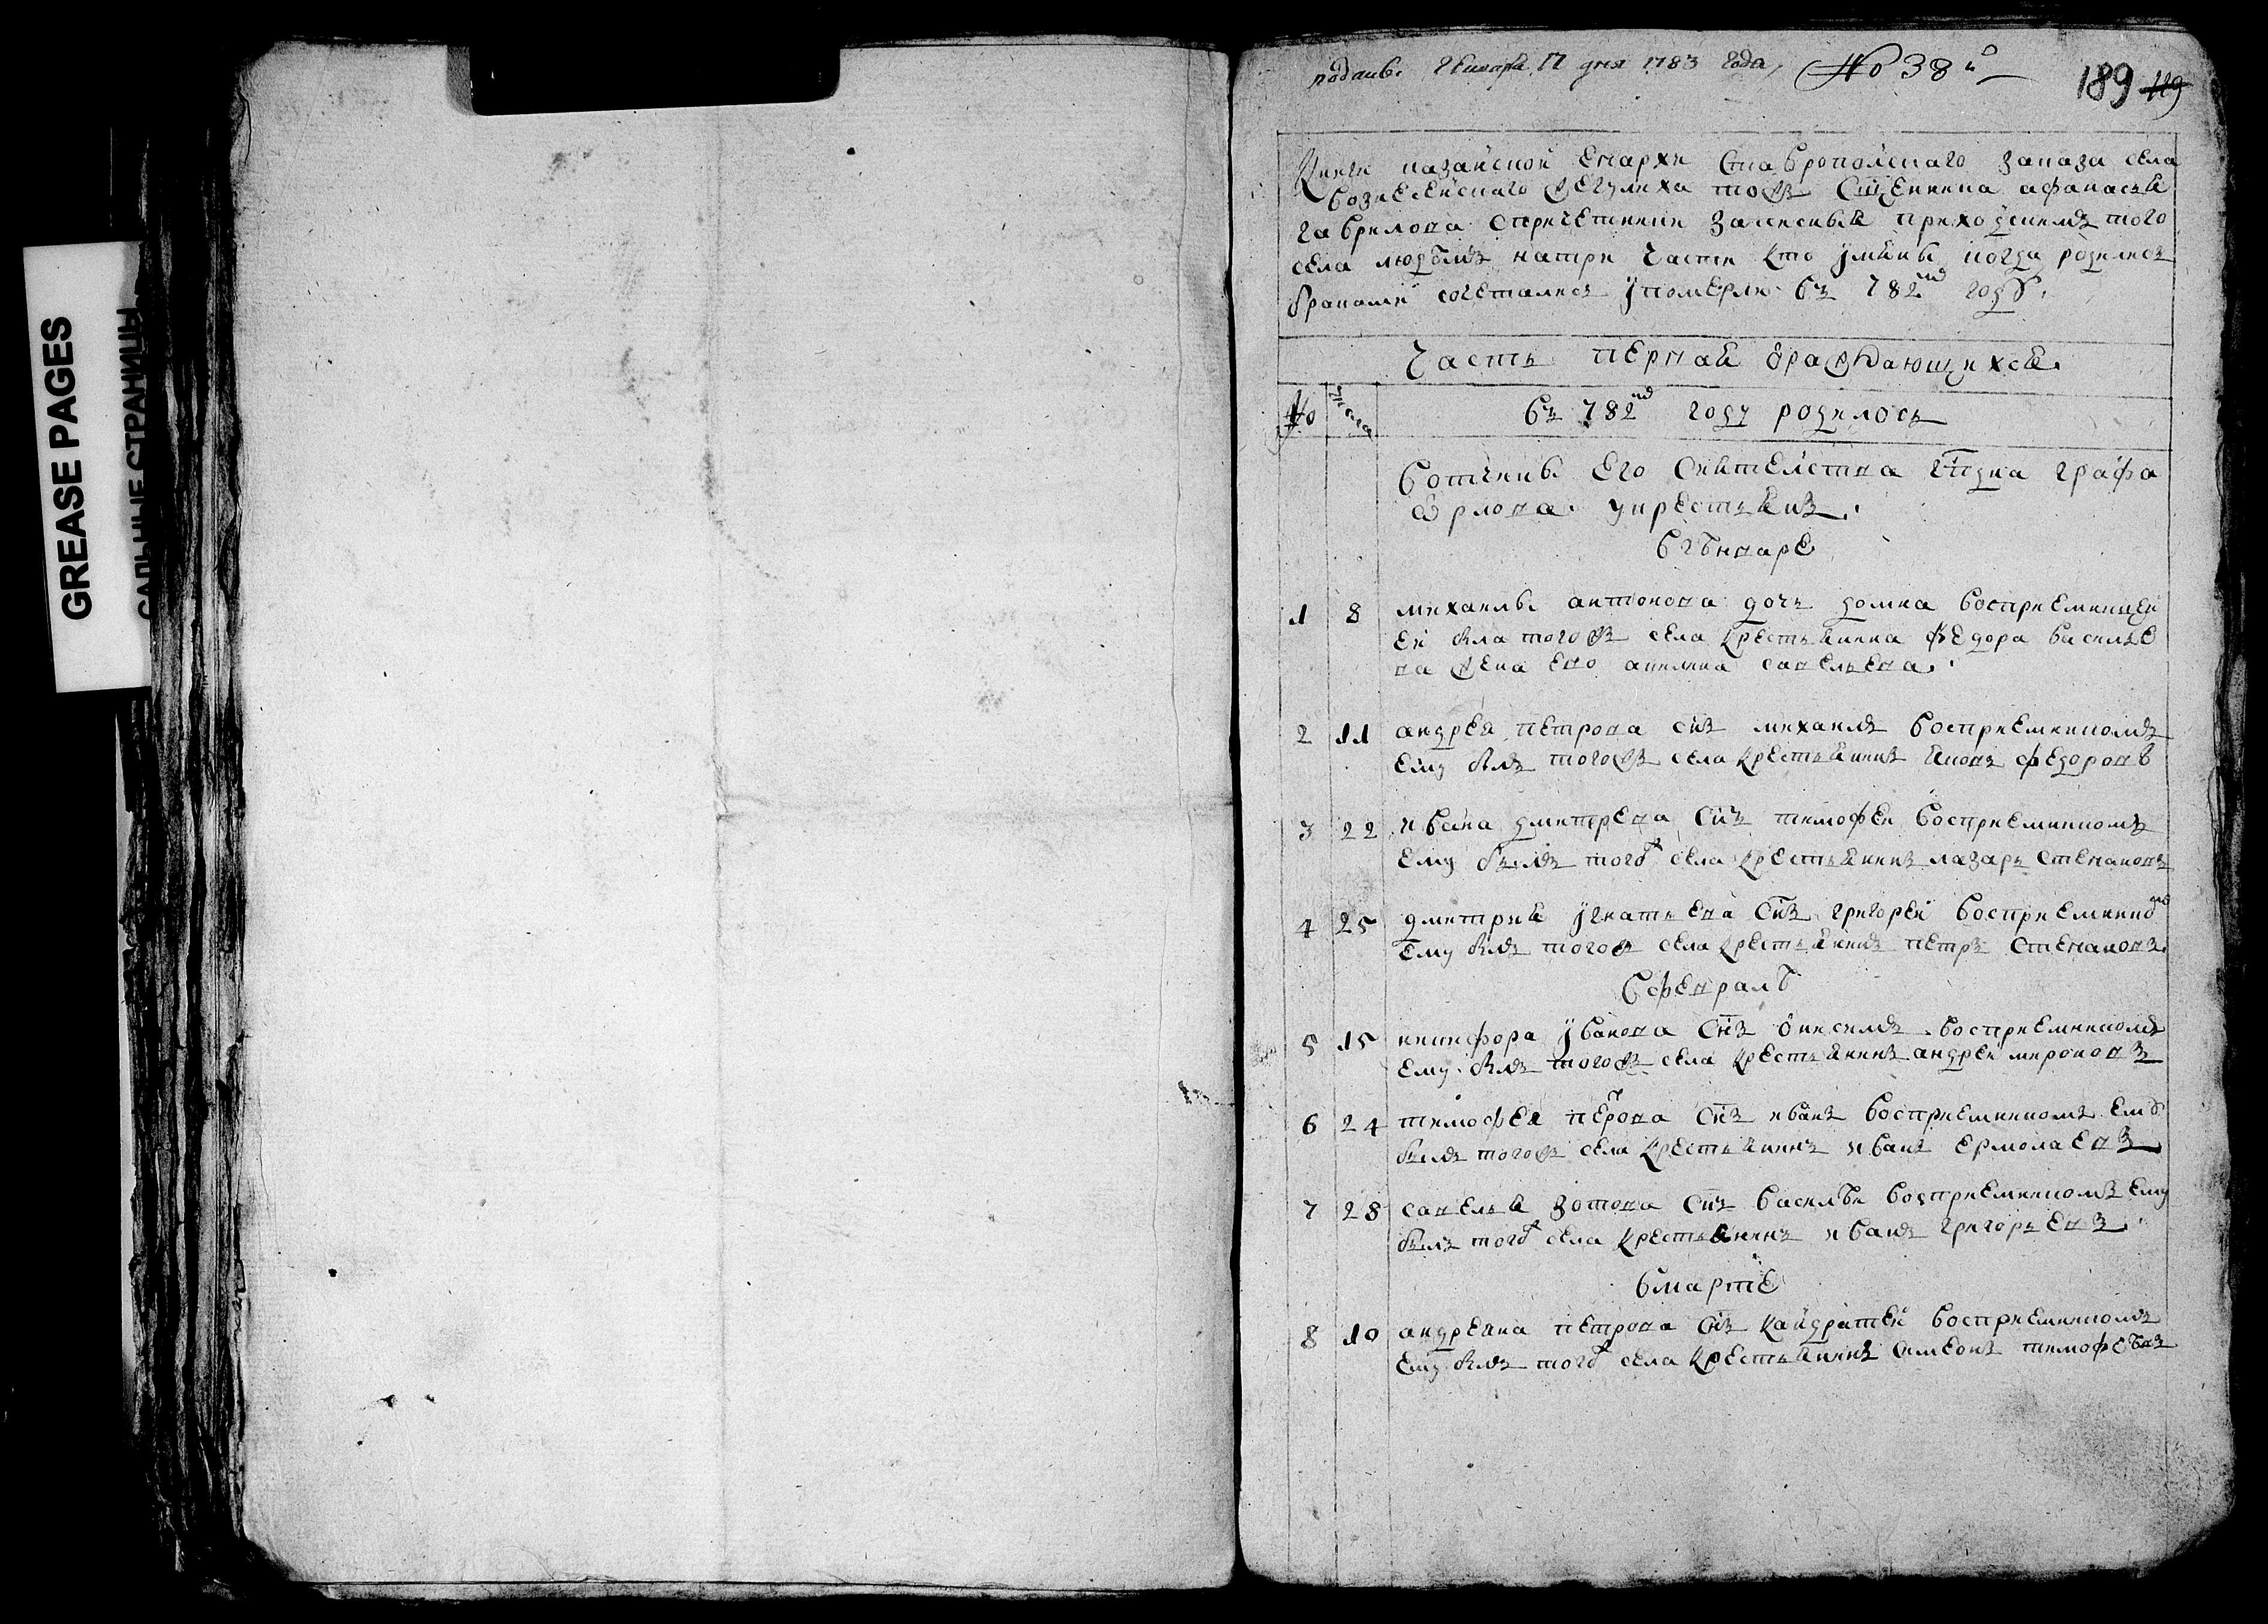 GREASE PAGES
САЛЬНЫЕ СТРАНИЦЫ
подано генваря 17 дня 1783 года № 38й
189 119
Книги казанской епархи Ставропольскаго заказа села
вознесенскаго жегулиха тожъ Сщенника афанасья
гаврилова спричетники записныя приходскимъ того
села людѣмъ натри части кто імяны когда родилися
браками сочеталися іпомерли въ 782м годѣ.
Часть первая ораждающихся
№ числа въ 782м году родилось
вотчины Его сиятельства гпдна графа
ѡрлова укрестьянъ
вгѣнваре
1 8 михаилы антонова дочь домна восприемницеи
еи была тогожъ села крестьянина федора василье
ва жена ево акилина савельева.
2 11 андрея петрова снъ михаилъ восприемникомъ
ему былъ тогожъ села крестьянинъ яковъ федоровъ
3 22 ивана дмитрева снъ тимофеи восприемникомъ
ему былъ тогож села крестьянинъ лазарь степановъ
4 25 дмитрия ігнатьева снъ григореи восприемником
ему былъ тогож села крестьянинъ петръ степановъ.
вфевралѣ
5 15 никифора іванова снъ ѻнисимъ восприемникомъ
ему былъ тогожъ села крестьянинъ андреи мироновъ
6 24 тимофея петрова снъ иванъ восприемникомъ емѹ
былъ тогожъ села крестьянинъ иванъ ермолаевъ
7 28 савелья зотова снъ василѣи восприемникомъ ему
былъ тогож села крестьянинъ иванъ григорьевъ.
вмарте
8 10 андреяна петрова снъ кандратеи восприемникомъ
ему былъ тогож села крестьянинъ симеонъ тимофѣвъ